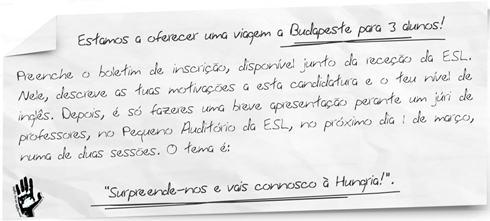 Estamos a oferecer uma viagem a Budapeste para 3 alunos!
Preenche o boletim de inscrição, disponível junto da receção da ESL.
Nele, descreve as tuas motivações a esta candidatura e o teu nível de
inglês. Depois, é só fazeres uma breve apresentação perante um júri de
professores, no Pequeno Auditório da ESL, no próximo dia 1 de março,
numa de duas sessões. O tema é:
"Surpreende-nos e vais connosco à Hungria!".